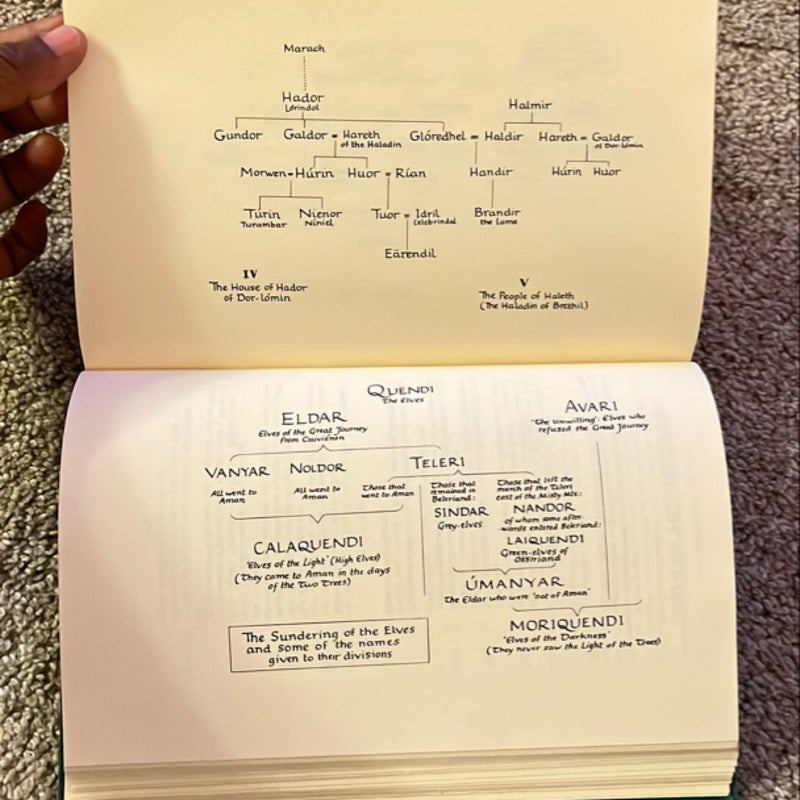 Marach
Hador
Lórindol
Halmir
Gundor Galdor = Hareth Glóredhel = Haldir Hareth = Galdor
of the Haladin
of Dor-lómin
Morwen = Húrin Huor = Rían Handir Húrin Huor
Túrin Nienor Tuor = Idril Brandir
Turambar Níniel Celebrindal the Lame
Eärendil
IV
The House of Hador
of Dor-lómin
V
The People of Haleth
(The Haladin of Brethil)
QUENDI
The Elves
ELDAR
Elves of the Great Journey
from Cuiviénen
AVARI
'The Unwilling': Elves who
refused the Great Journey
VANYAR NOLDOR TELERI
All went to
Aman
All went to
Aman
Those that
went to Aman
Those that
remained in
Beleriand:
SINDAR
Grey-elves
Those that left the
march of the Teleri
east of the Misty Mts.:
NANDOR
of whom some after-
wards entered Beleriand:
LAIQUENDI
Green-elves of
Ossiriand
CALAQUENDI
'Elves of the Light' (High Elves)
(They came to Aman in the days
of the Two Trees)
ÚMANYAR
The Eldar who were 'not of Aman'
MORIQUENDI
'Elves of the Darkness'
(They never saw the Light of the Trees)
The Sundering of the Elves
and some of the names
given to their divisions